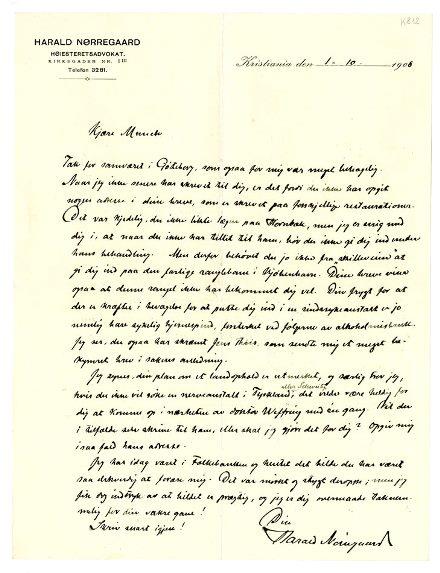 K 812
HARALD NØRREGAARD
HØIESTERETSADVOKAT.
KIRKEGADEN NR.
Telefon 3281.
Kristiania den 1 - 10 - 1908
Kjære Munch
Tak for samværet i Göteborg, som ogsaa for mig var meget behagelig.
Naar jeg ikke snere har skrevet til dig, er det fordi du ikke har opgit
nogen adresse i dine breve, som er skrevet paa forskjellige restaurationer.
Det var kjedelig, du ikke likte lægen paa Hornbæk, men jeg er enig med
dig i, at naar du ikke har tillit til ham, bør du ikke gi dig ind under
hans behandling. Men derfor behøvet du jo ikke fra
gi dig ind paa den farlige i Kjøbenhavn. Dine breve viser
ogsaa at denne rangel ikke har bekommet dig vel. Din frygt for at
der er kræfter i bevægelse for at putte dig ind i en sindssykeanstalt er jo
nemlig bare sykelig hjernespind, forsterket ved følgerne av alkoholmisbruk.
Jeg ser, du ogsaa har skræmt Jens Thiis, som sendte mig et meget be-
kymret brev i sakens anledning.
Jeg synes, din plan om et landophold er utmerket, og særlig tror jeg,
hvis du ikke vil søke en nerveanstalt i Tyskland eller Schweitz, det vilde være heldig for
dig at komme op i nærheten av doktor med én gang. Vil du
i tilfælde selv skrive til ham, eller skal jeg gjøre det for dig? Opgiv mig
i saa fald hans adresse.
Jeg har idag været i Folkebanken og hentet det bilde du har været
saa elskverdig at forære mig. Det var mørkt og skygt deroppe; men jeg
fik dog indtryk av at bildet er prægtig, og jeg er dig overmaade taknem-
melig for din vakre gave!
Skriv snart igjen!
Din
Harald Nørregaard